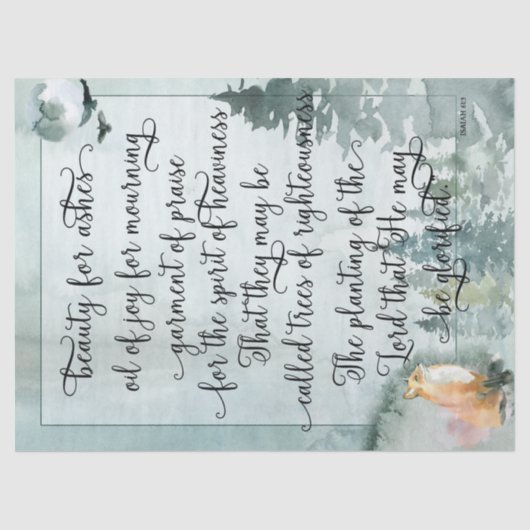 beauty for ashes
oil of joy for mourning
garment of praise
for the spirit of heaviness
That they may be
called trees of righteousness
The planting of the
Lord that He may
be glorified."
ISAIAH 61:3